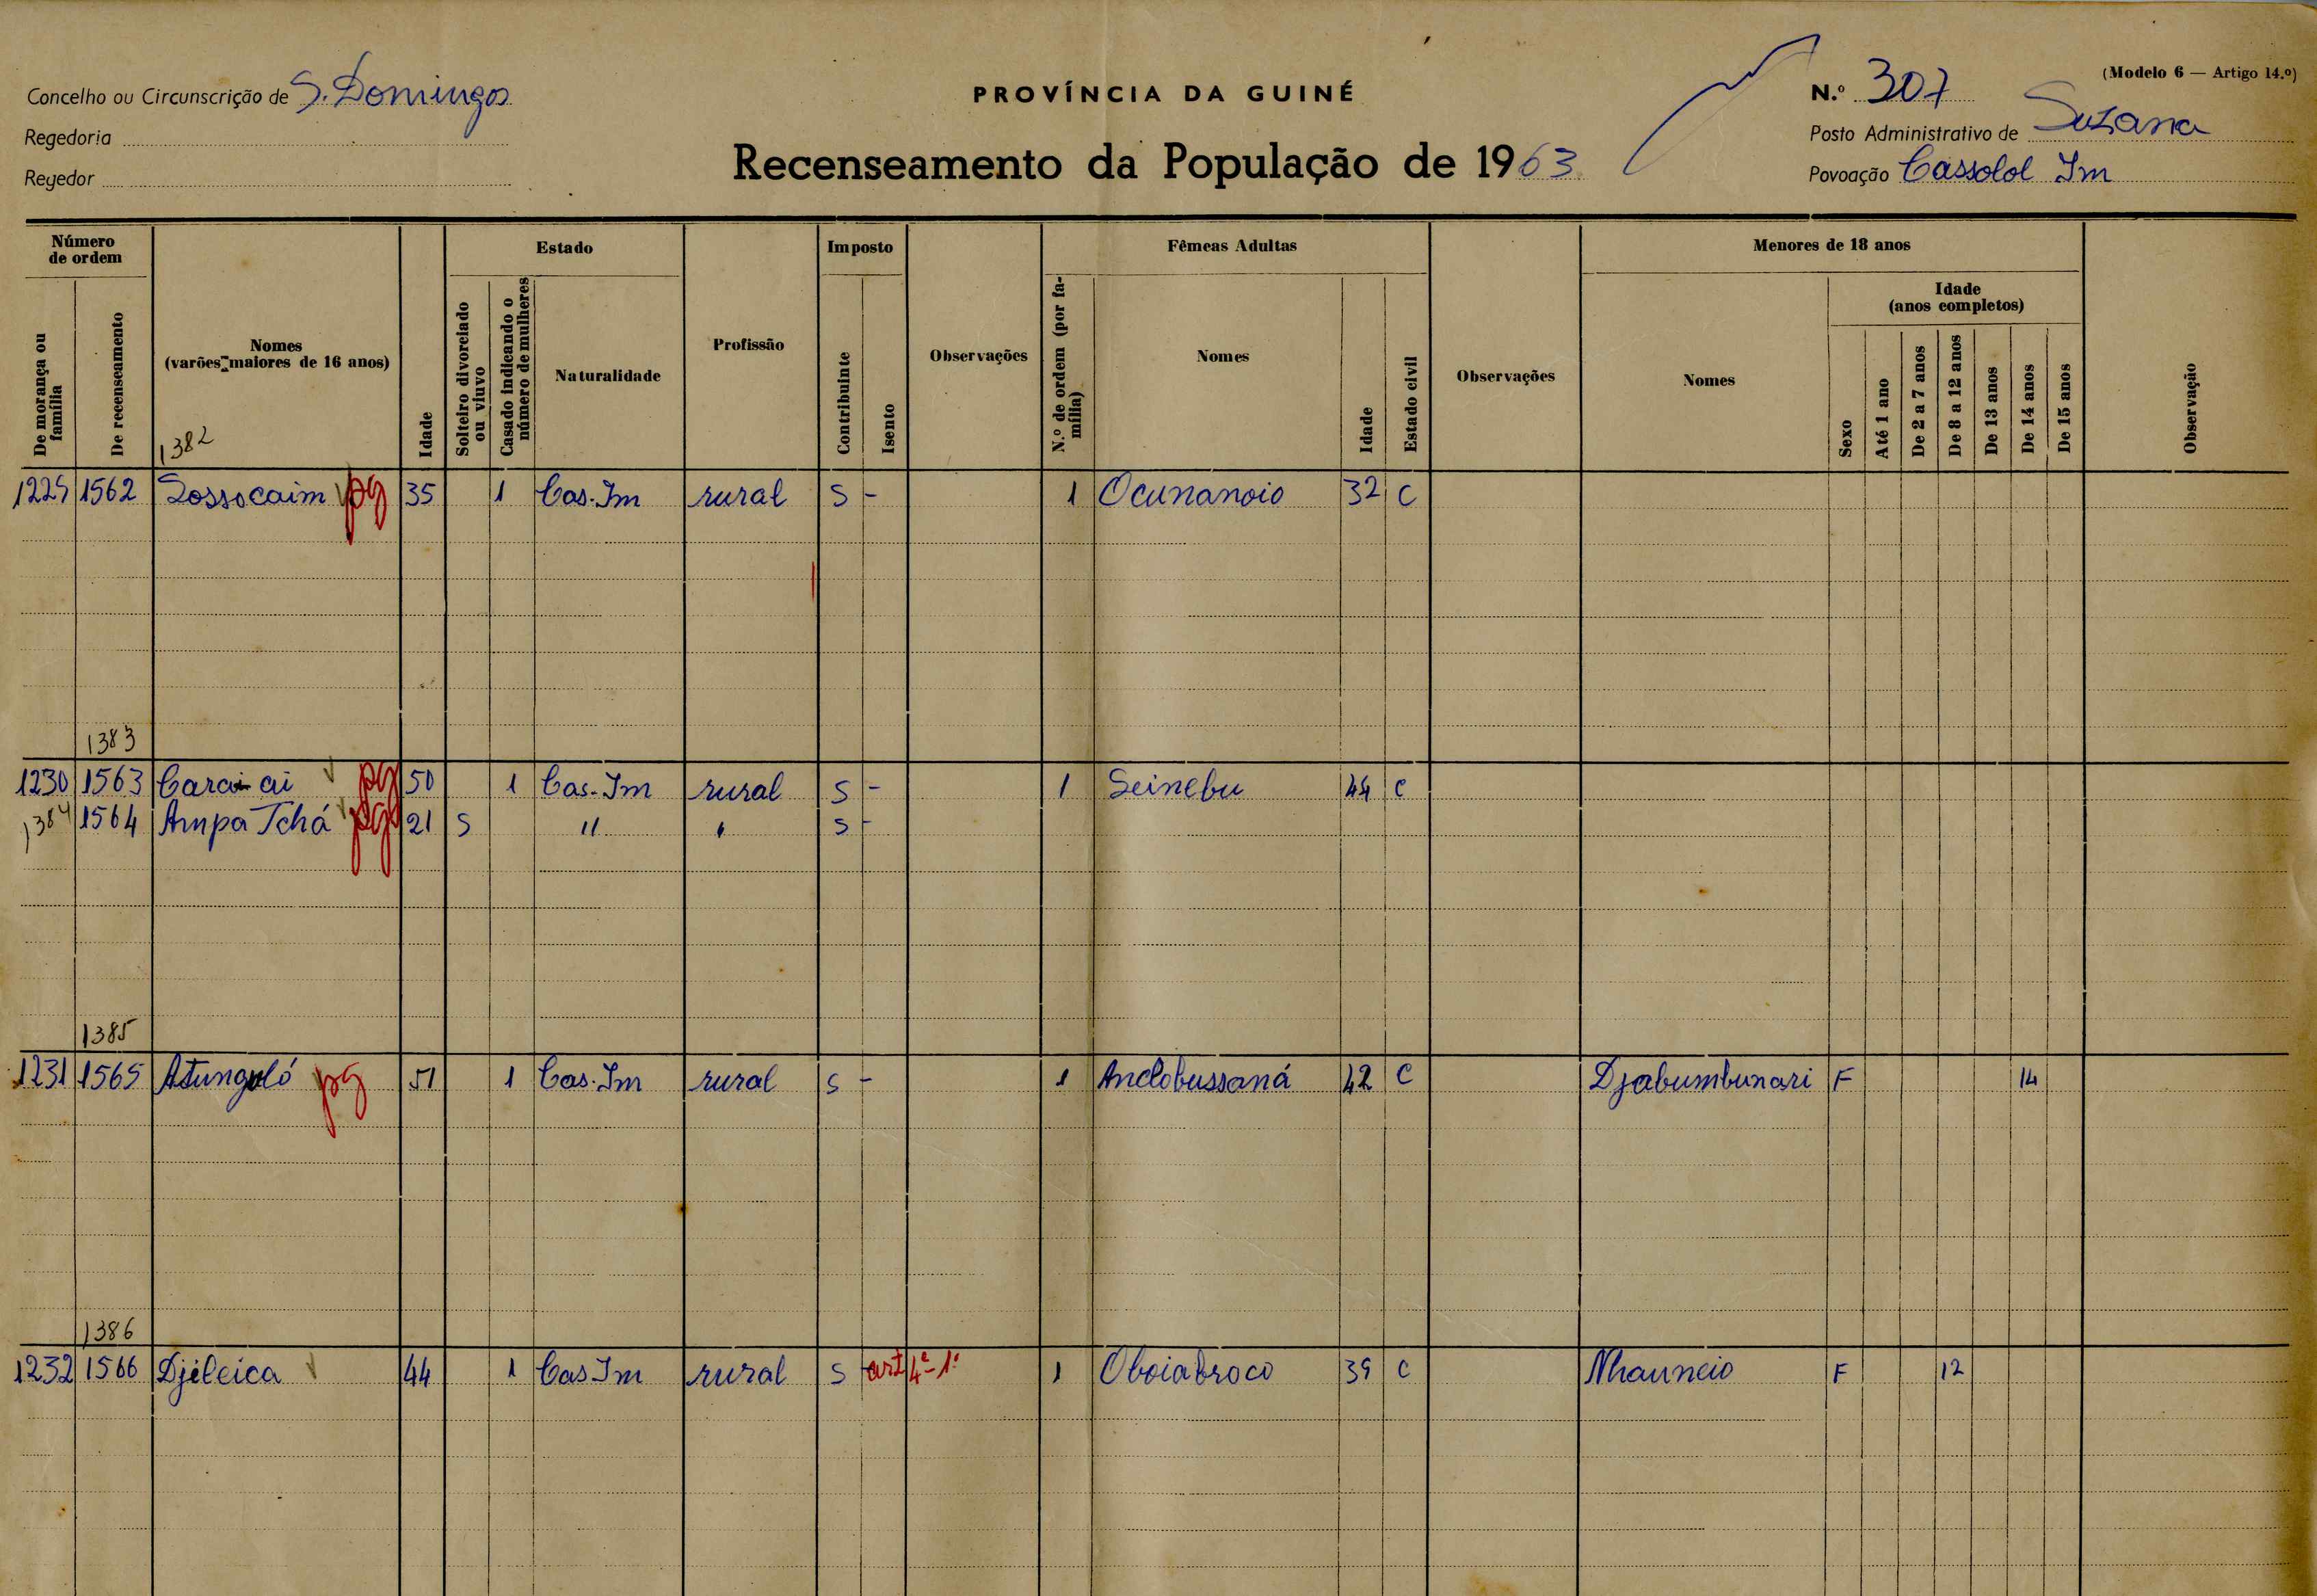 (Modelo 6 — Artigo 14.º)
Concelho ou Circunscrição de S. Domingos
PROVÍNCIA DA GUINÉ
N.º 307
Regedoria
Posto Administrativo de Suzana
Recenseamento da População de 1963
Regedor
Povoação Cassolol Im
Número de ordem
Estado
Imposto
Fêmeas Adultas
Menores de 18 anos
De morança ou família
De recenseamento
Nomes
(varões maiores de 16 anos)
Idade
Solteiro divorciado ou viuvo
Casado indicando o número de mulheres
Naturalidade
Profissão
Contribuinte
Isento
Observações
N.º de ordem (por família)
Nomes
Idade
Estado civil
Observações
Nomes
Sexo
Idade
(anos completos)
Até 1 ano
De 2 a 7 anos
De 8 a 12 anos
De 13 anos
De 14 anos
De 15 anos
Observação
1382
1562 Sossocaim pg 35 1 Cas. Im rural S - 1 Ocunanoio 32 C
1383
1230 1563 Carai ai pg 50 1 Cas. Im rural S - 1 Seinebu 44 C
1384 1564 Ampa Tchá pg 21 S " " S -
1385
1231 1565 Atungoló pg 51 1 Cas. Im rural S - 1 Andobussaná 42 C Djabumbunari F 14
1386
1232 1566 Djileica 44 1 Cas Im rural S art 4º - 1º 1 Oboiabroco 39 C Nhauneio F 12